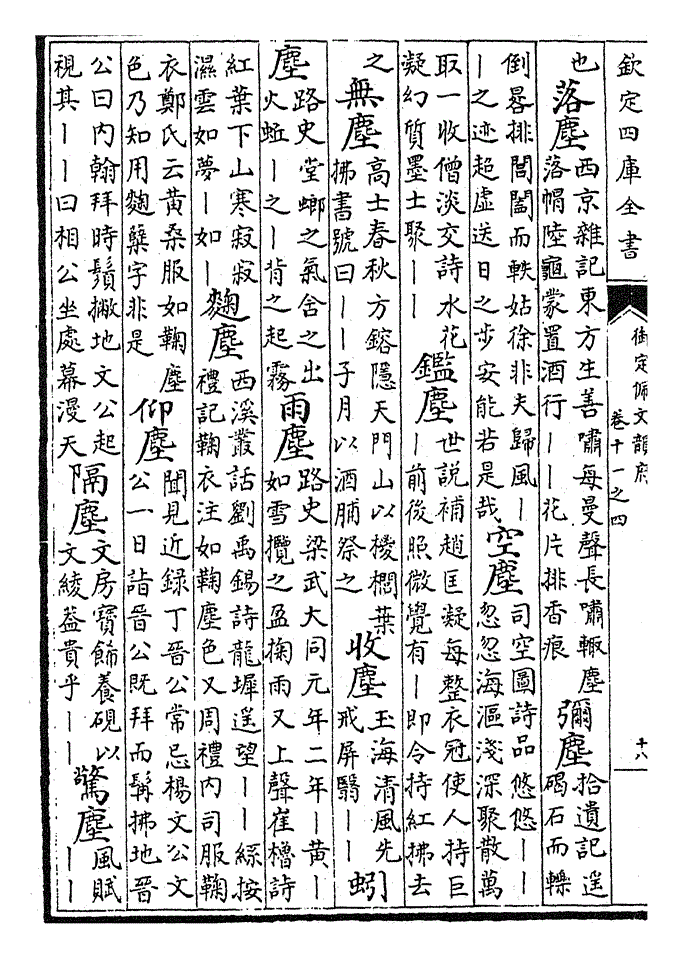 欽定四庫全書
御定佩文韻府
卷十一之四
十八
也
落塵
西京雜記東方生善嘯每曼聲長嘯輙塵
落帽陸龜蒙置酒行丨丨花片排香痕
彌塵
拾遺記遥
碣石而轢
倒景排閶闔而軼姑徐非夫歸風丨
丨之迹超虚送日之步安能若是哉
空塵
司空圖詩品悠悠丨丨
忽忽海漚淺深聚散萬
取一收僧淡交詩水花
凝幻質墨土聚丨丨
鑑塵
世説補趙匡凝每整衣冠使人持巨
丨前後照微覺有丨即令持紅拂去
之
無塵
高士春秋方鎔隱天門山以椶櫚葉
拂書號曰丨丨子月以酒脯祭之
收塵
玉海清風先
戒屏翳丨丨
蚓
塵
路史堂螂之氣舍之出
火蚯丨之丨背之起霧
雨塵
路史梁武大同元年二年丨黄丨
如雪攬之盈掬雨又上聲崔櫓詩
紅葉下山寒寂寂
濕雲如夢丨如丨
麴塵
西溪叢話劉禹錫詩龍墀遥望丨丨絲按
禮記鞠衣注如鞠塵色又周禮内司服鞠
衣鄭氏云黄桑服如鞠塵
色乃知用麴糵字非是
仰塵
聞見近録丁晉公常忌楊文公文
公一日詣晉公既拜而髯拂地晉
公曰内翰拜時鬚撇地文公起
視其丨丨曰相公坐處幕漫天
隔塵
文房寶飾養硯以
文綾葢貴乎丨丨
驚塵
風賦
丨丨